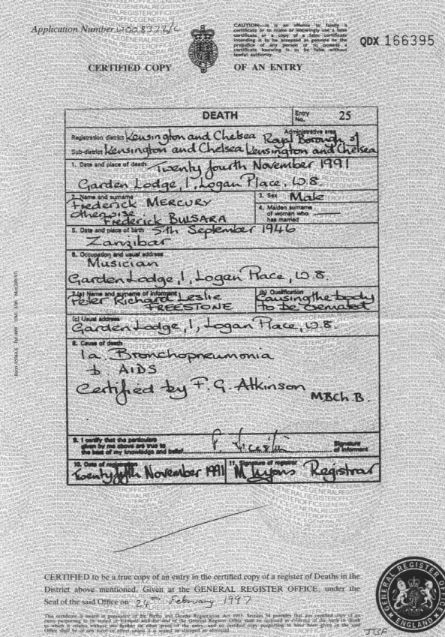 Application Number
CAUTION:— It is an offence to falsify a
certificate or to make or knowingly use a false
certificate or a copy of a false certificate
intending it to be accepted as genuine to the
prejudice of any person or to possess a
certificate knowing it to be false without
lawful authority.
QDX 166395
CERTIFIED COPY OF AN ENTRY
DEATH
Entry No. 25
Registration district Kensington and Chelsea
Administrative area
Sub-district Kensington and Chelsea
Royal Borough of
Kensington and Chelsea
1. Date and place of death Twenty fourth November 1991
Garden Lodge, 1, Logan Place, W.8.
2. Name and surname
Frederick MERCURY
otherwise
Frederick BULSARA
3. Sex Male
4. Maiden surname
of woman who
has married
5. Date and place of birth 5th September 1946
Zanzibar
6. Occupation and usual address
Musician
Garden Lodge, 1, Logan Place, W.8.
7.(a) Name and surname of informant
Peter Richard Leslie
FREESTONE
(b) Qualification
Causing the body
to be cremated
(c) Usual address
Garden Lodge, 1, Logan Place, W.8.
8. Cause of death
1a. Bronchopneumonia
b. AIDS
Certified by F. G. Atkinson
MBCh.B.
9. I certify that the particulars
given by me above are true to
the best of my knowledge and belief
Signature
of informant
10. Date of registration
Twenty fifth November 1991
11. Signature of registrar
M Lyons Registrar
CERTIFIED to be a true copy of an entry in the certified copy of a register of Deaths in the
District above mentioned. Given at the GENERAL REGISTER OFFICE, under the
Seal of the said Office on 24th February 1997
GENERAL REGISTER OFFICE
ENGLAND